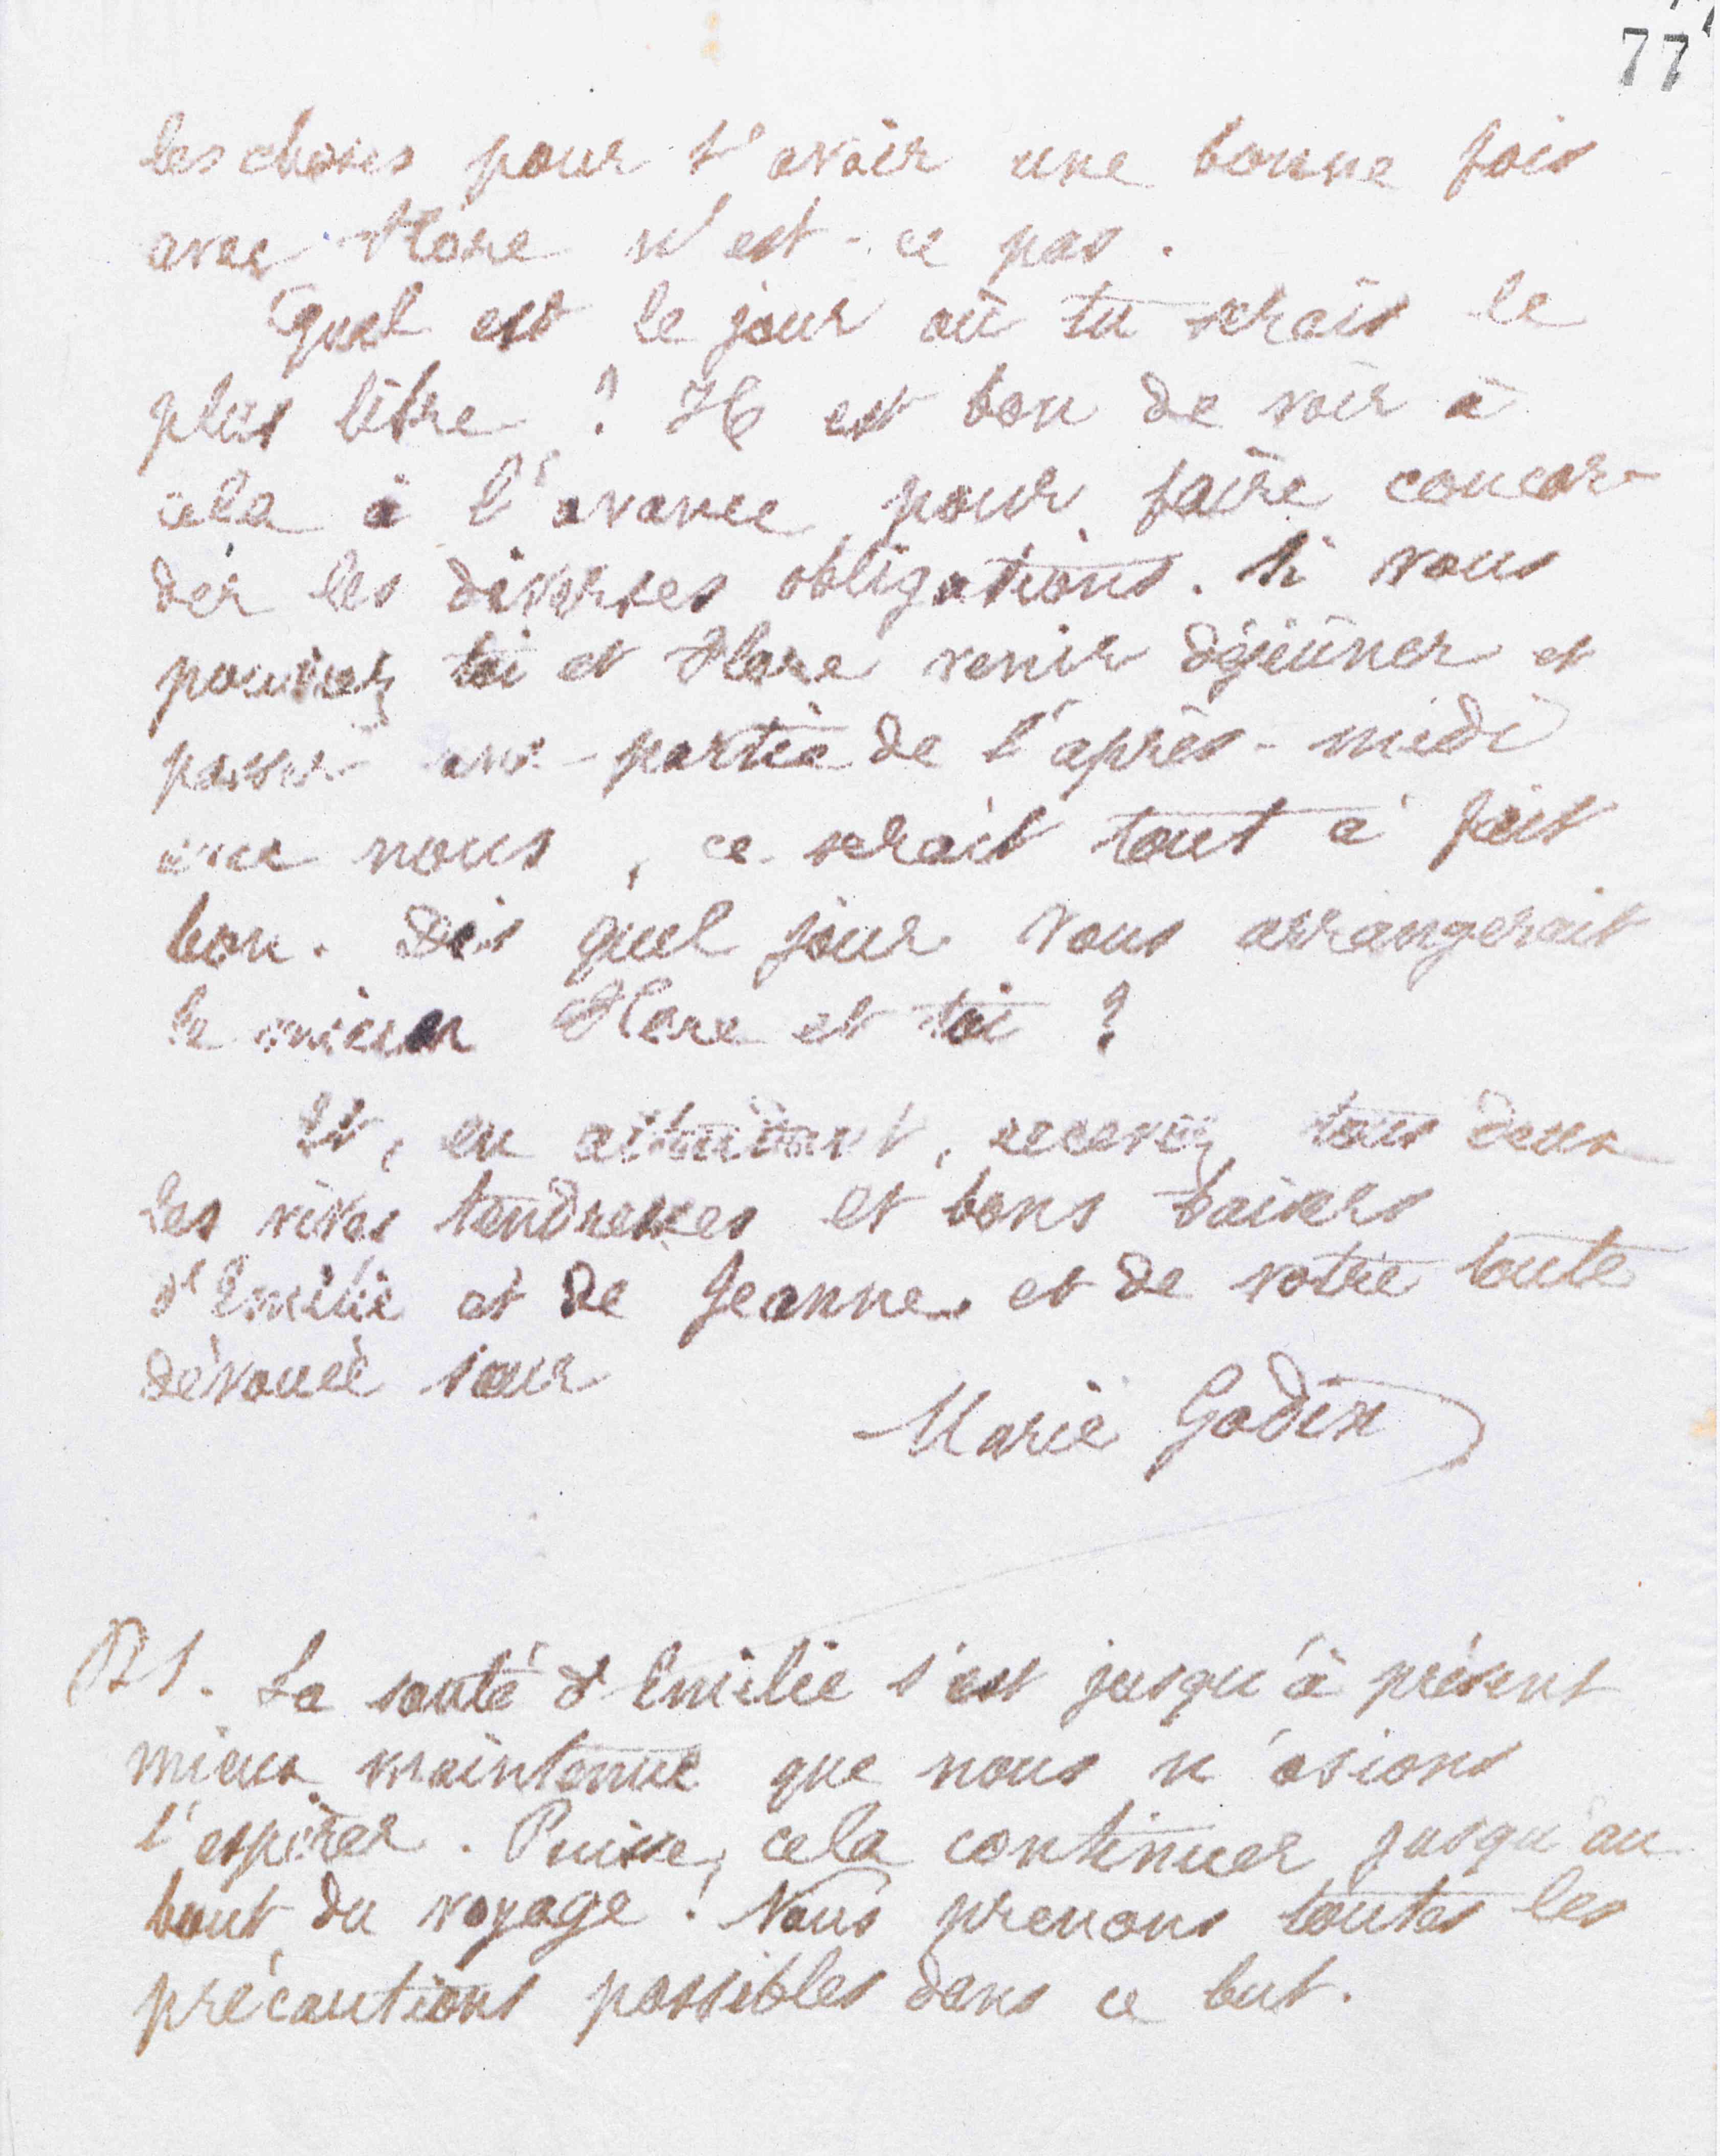 77
les choses pour t'avoir une bonne fois
avec Flore n'est-ce pas.
Quel est le jour où tu serais le
plus libre ? Il est bon de voir à
cela à l'avance pour faire concor-
der les diverses obligations. Si vous
pouviez toi et Flore venir déjeûner et
passer une partie de l'après-midi
avec nous, ce serait tout à fait
bon. Dis quel jour vous arrangerait
le mieux Flore et toi ?
Et, en attendant, recevez tous deux
les vives tendresses et bons baisers
d'Emilie et de Jeanne et de votre toute
dévouée sœur
Marie Godin
P.S. La santé d'Emilie s'est jusqu'à présent
mieux maintenue que nous n'osions
l'espérer. Puisse cela continuer jusqu'au
bout du voyage ! Nous prenons toutes les
précautions possibles dans ce but.